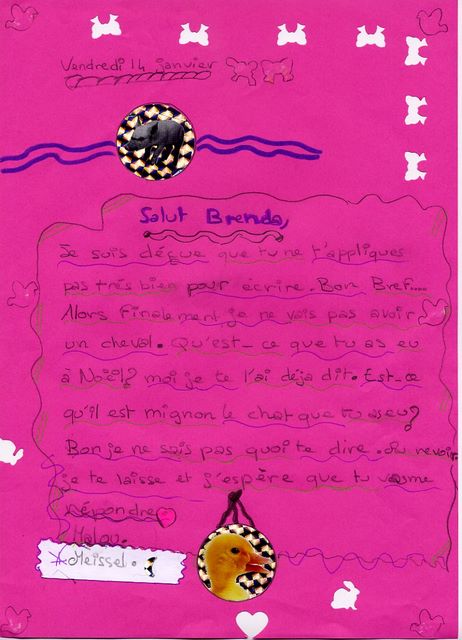 Vendredi 14 janvier
Salut Brenda,
Je suis déçue que tu ne t'appliques
pas très bien pour écrire. Bon Bref....
Alors Finalement je ne vais pas avoir
un cheval. Qu'est-ce que tu as eu
à Noël? moi je te l'ai déja dit. Est-ce
qu'il est mignon le chat que tu as eu?
Bon je ne sais pas quoi te dire. Au revoir
je te laisse et j'espère que tu vas me
répondre
Malou.
Meissel.